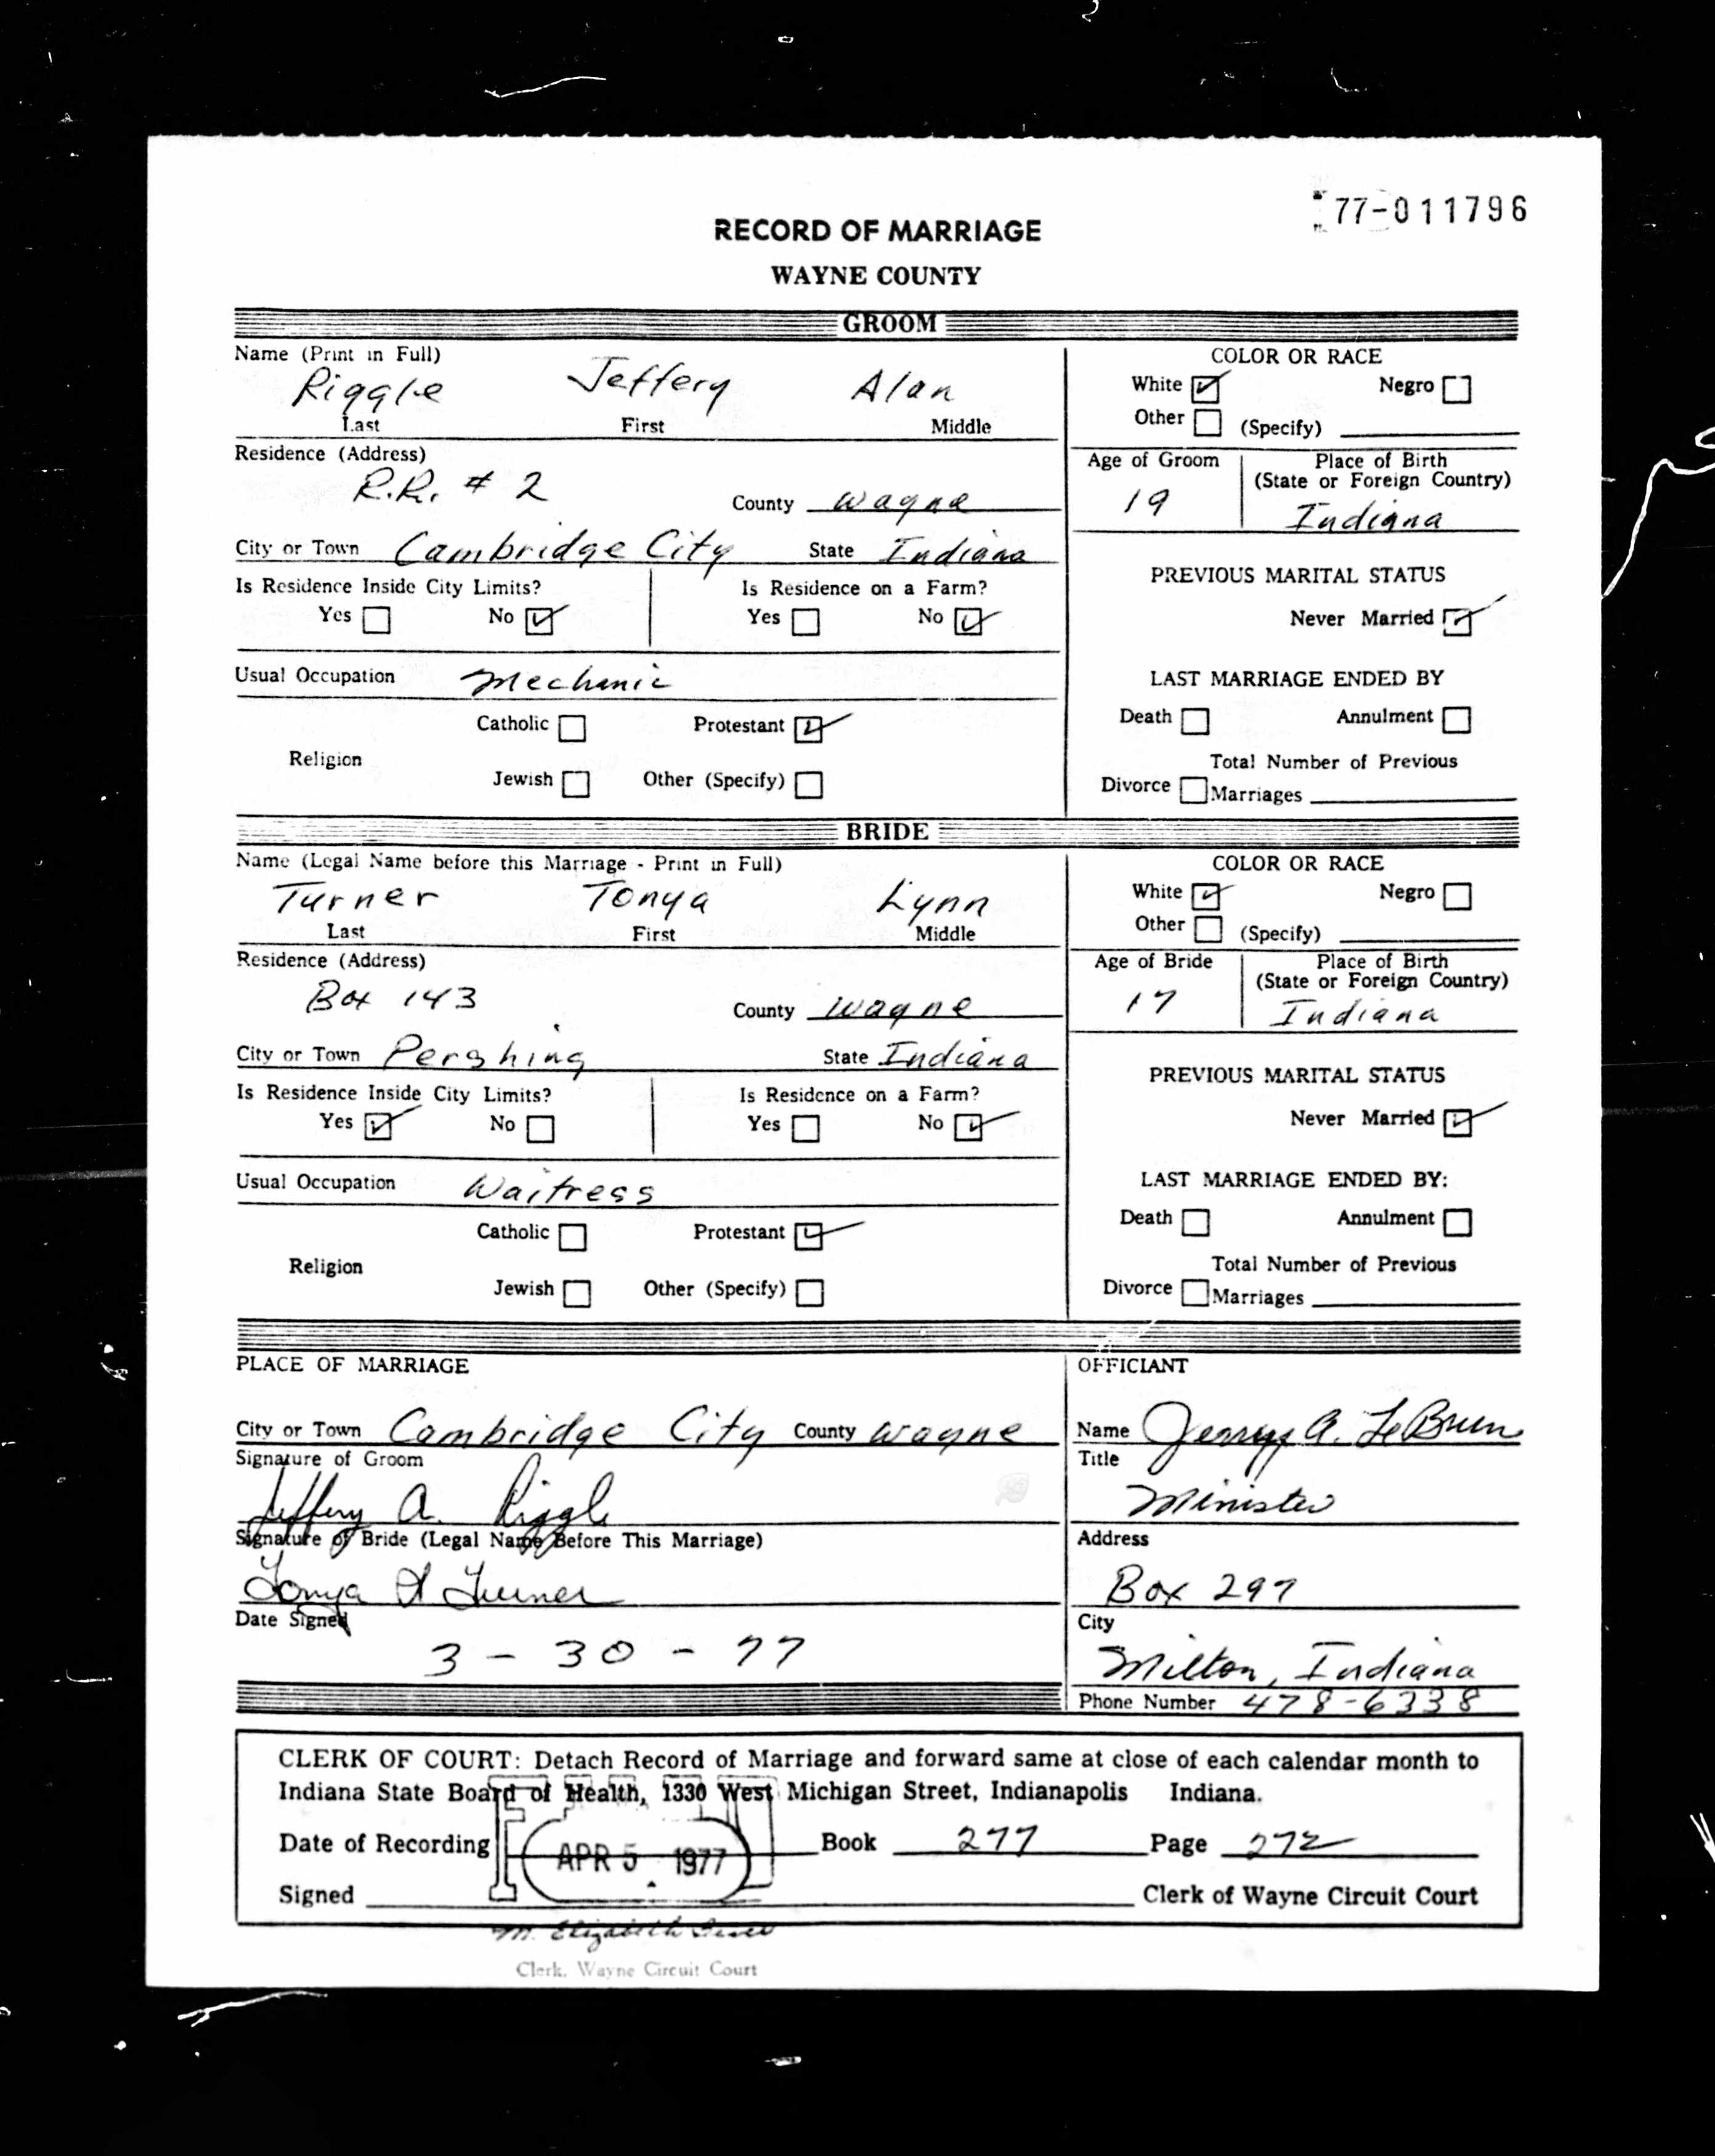 77-011796
RECORD OF MARRIAGE
WAYNE COUNTY
GROOM
Name (Print in Full)
Riggle Jeffery Alan
Last First Middle
COLOR OR RACE
White ☑ Negro ☐
Other ☐ (Specify)
Residence (Address)
R.R. # 2 County Wayne
Age of Groom Place of Birth
(State or Foreign Country)
19 Indiana
City or Town Cambridge City State Indiana
Is Residence Inside City Limits? Is Residence on a Farm?
Yes ☐ No ☑ Yes ☐ No ☑
PREVIOUS MARITAL STATUS
Never Married ☑
Usual Occupation Mechanic
LAST MARRIAGE ENDED BY
Catholic ☐ Protestant ☑
Religion
Jewish ☐ Other (Specify) ☐
Death ☐ Annulment ☐
Total Number of Previous
Divorce ☐ Marriages
BRIDE
Name (Legal Name before this Marriage - Print in Full)
Turner Tonya Lynn
Last First Middle
COLOR OR RACE
White ☑ Negro ☐
Other ☐ (Specify)
Residence (Address)
Box 143 County Wayne
Age of Bride Place of Birth
(State or Foreign Country)
17 Indiana
City or Town Pershing State Indiana
Is Residence Inside City Limits? Is Residence on a Farm?
Yes ☑ No ☐ Yes ☐ No ☑
PREVIOUS MARITAL STATUS
Never Married ☑
Usual Occupation Waitress
LAST MARRIAGE ENDED BY:
Catholic ☐ Protestant ☑
Religion
Jewish ☐ Other (Specify) ☐
Death ☐ Annulment ☐
Total Number of Previous
Divorce ☐ Marriages
PLACE OF MARRIAGE
City or Town Cambridge City County Wayne
Signature of Groom
Jeffery A. Riggle
Signature of Bride (Legal Name Before This Marriage)
Tonya L Turner
Date Signed
3 - 30 - 77
OFFICIANT
Name Jerry A. LeBrun
Title
Minister
Address
Box 297
City
Milton, Indiana
Phone Number 478-6338
CLERK OF COURT: Detach Record of Marriage and forward same at close of each calendar month to
Indiana State Board of Health, 1330 West Michigan Street, Indianapolis Indiana.
Date of Recording APR 5 1977 Book 277 Page 272
Signed Clerk of Wayne Circuit Court
M. Elizabeth
Clerk, Wayne Circuit Court